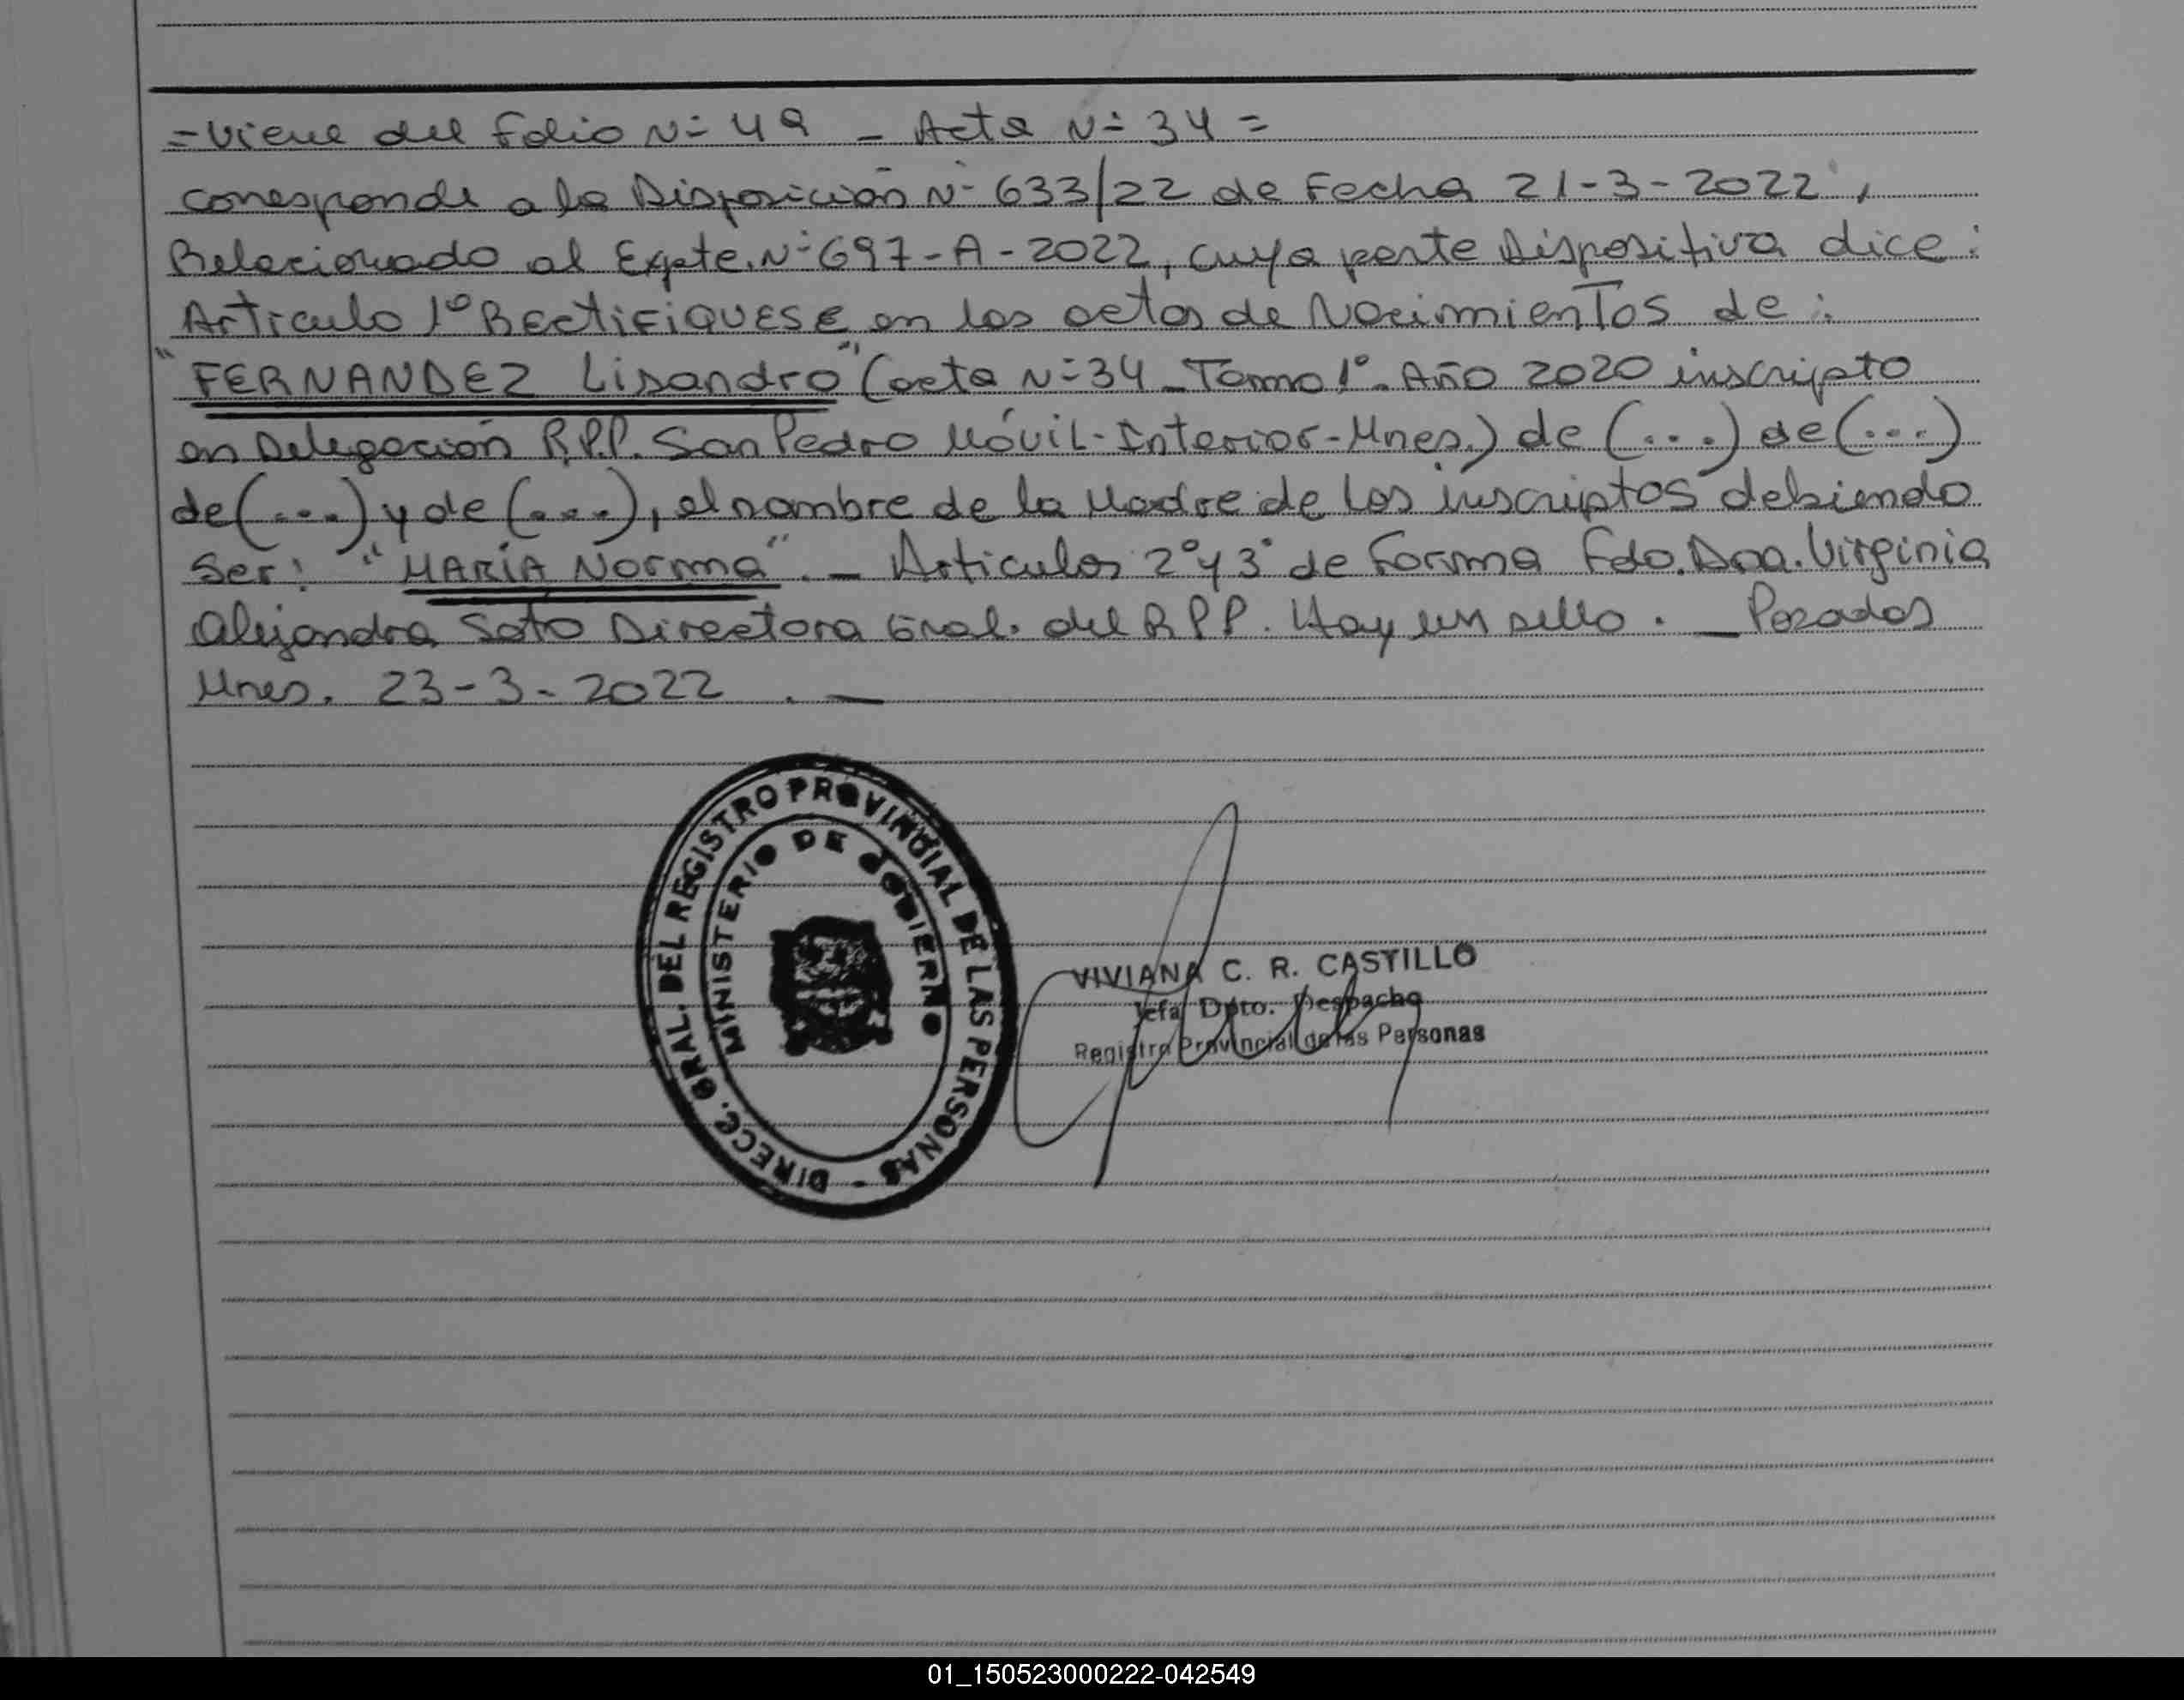 =Viene del Folio Nº 49 - Acta Nº 34 =
corresponde a la Disposición Nº 633/22 de Fecha 21-3-2022,
Relacionado al Expte. Nº 697-A-2022, cuya parte Dispositiva dice:
Articulo 1º RECTIFIQUESE en las actas de Nacimientos de:
"FERNANDEZ Lisandro" (acta Nº 34 - Tomo 1º - Año 2020 inscripto
en Delegación R.P.P. San Pedro Móvil-Interior-Mnes.) de (...) de (...)
de (...) y de (...), el nombre de la Madre de los inscriptos debiendo
Ser: "MARÍA Norma". - Articulos 2º y 3º de Forma Fdo. Dra. Virginia
Alejandra Soto Directora Gral. del RPP. Hay un sello. - Posadas
Mnes. 23-3-2022 . —
DIRECC. GRAL. DEL REGISTRO PROVINCIAL DE LAS PERSONAS -
MINISTERIO DE GOBIERNO
VIVIANA C. R. CASTILLO
Jefa Dpto. Despacho
Registro Provincial de las Personas
01_150523000222-042549